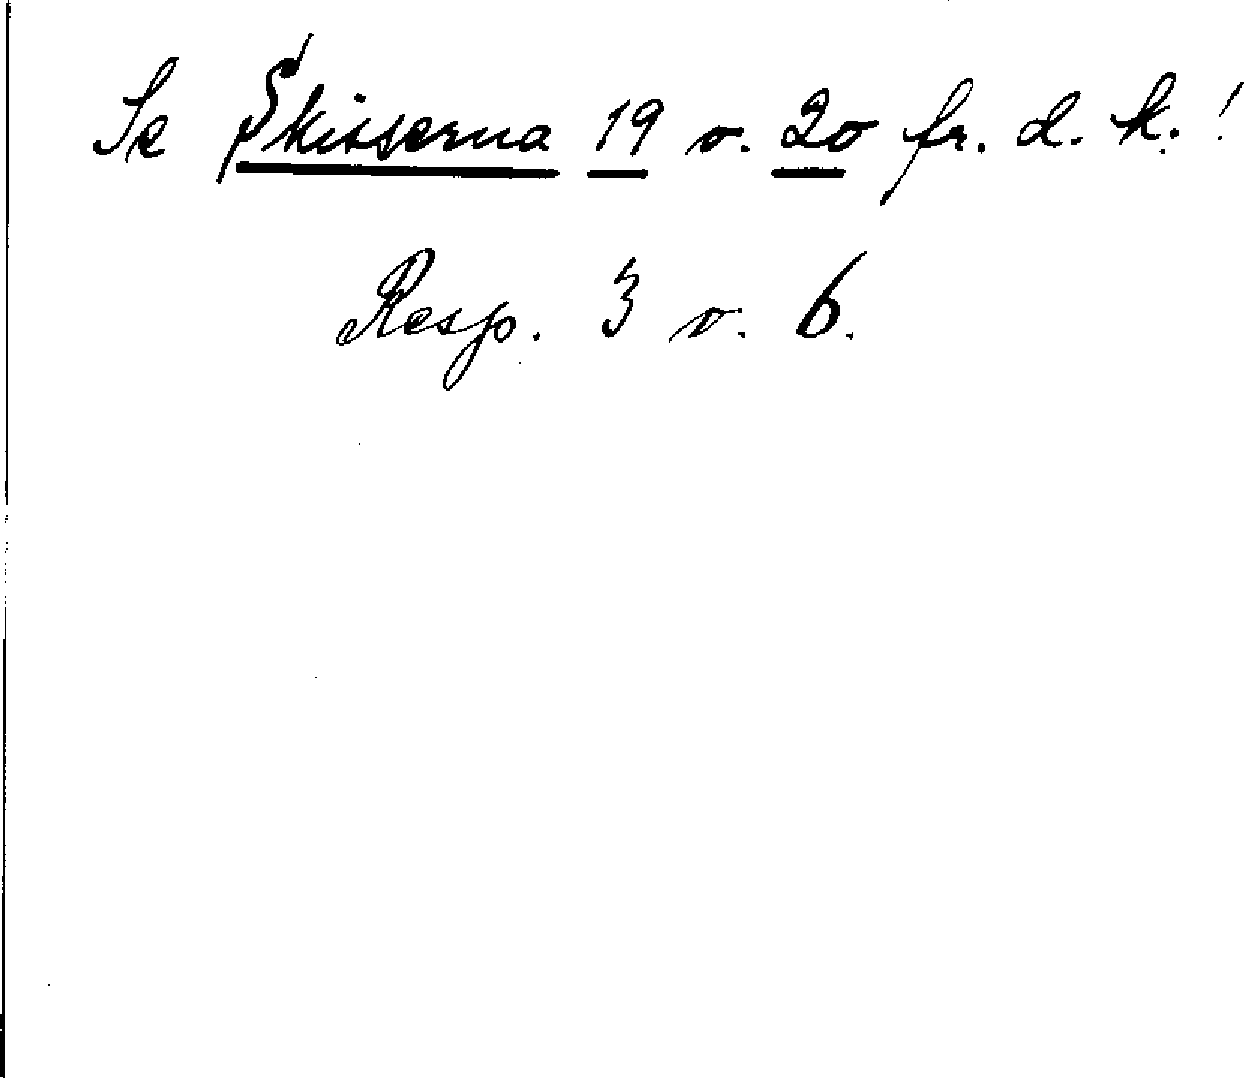 Se Skisserna 19 o. 20 fr. d. k.!
Resp. 3 o. 6.